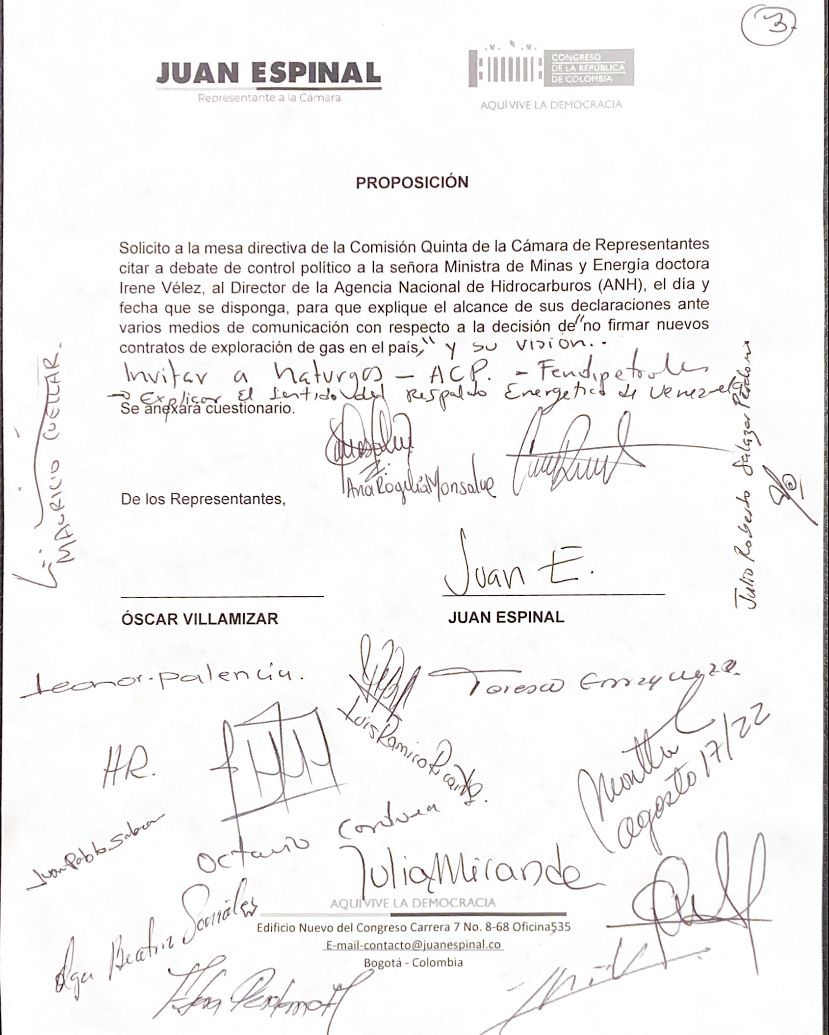 3
JUAN ESPINAL
Representante a la Cámara
CONGRESO
DE LA REPÚBLICA
DE COLOMBIA
AQUÍ VIVE LA DEMOCRACIA
PROPOSICIÓN
Solicito a la mesa directiva de la Comisión Quinta de la Cámara de Representantes
citar a debate de control político a la señora Ministra de Minas y Energía doctora
Irene Vélez, al Director de la Agencia Nacional de Hidrocarburos (ANH), el día y
fecha que se disponga, para que explique el alcance de sus declaraciones ante
varios medios de comunicación con respecto a la decisión de "no firmar nuevos
contratos de exploración de gas en el país," y su vision..
Invitar a Naturgas - ACP. - Fendipetroleo
→ Explicar el sentido del respaldo Energetico de Venezuela
Se anexará cuestionario.
Ana Rogelia Monsalve
De los Representantes,
Juan E.
ÓSCAR VILLAMIZAR
JUAN ESPINAL
MAURICIO CUELLAR.
Julio Roberto Salazar Perdomo
Leonor Palencia.
Teresa Enriquez R.
Luis Ramiro Ricardo
HR.
agosto 17/22
Juan Pablo Salazar
Octavio Cardona
Julia Miranda
AQUÍ VIVE LA DEMOCRACIA
Edificio Nuevo del Congreso Carrera 7 No. 8-68 Oficina535
E-mail-contacto@juanespinal.co
Bogotá - Colombia
Olga Beatriz González